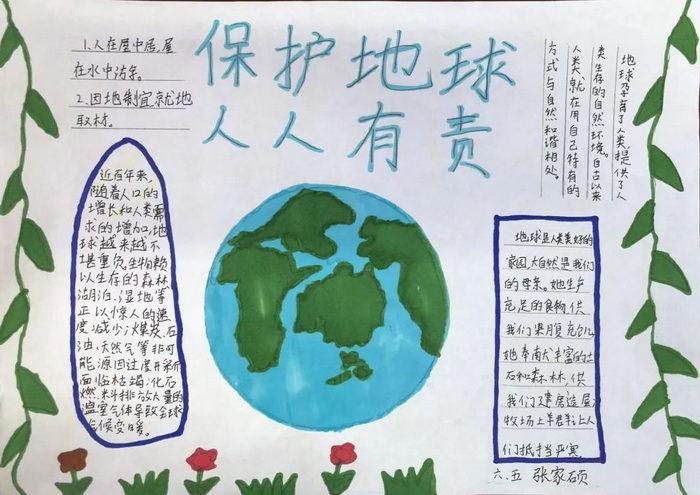 保护地球
人人有责
1.人在屋中居,屋
在水中沽。
2.因地制宜,就地
取材。
地球孕育了人类,提供了人
类生存的自然环境。自古以来
人类就在用自己特有的
方式与自然和谐相处。
近百年来,
随着人口的
增长和人类需
求的增加,地
球越来越不
堪重负,生物赖
以生存的森林
湖泊、湿地等
正以惊人的速
度减少;煤炭、石
油、天然气等非可
能源因过度开采
面临枯竭;化石
燃料排放大量的
温室气体导致全球
气候变暖。
地球是人类美好的
家园,大自然是我们
的母亲。她生产
充足的食物,供
我们果腹充饥;
她奉献丰富的土
石和森林,供
我们建房造屋,
牧场上羊群,让人
们抵挡严寒
六、五 张家硕